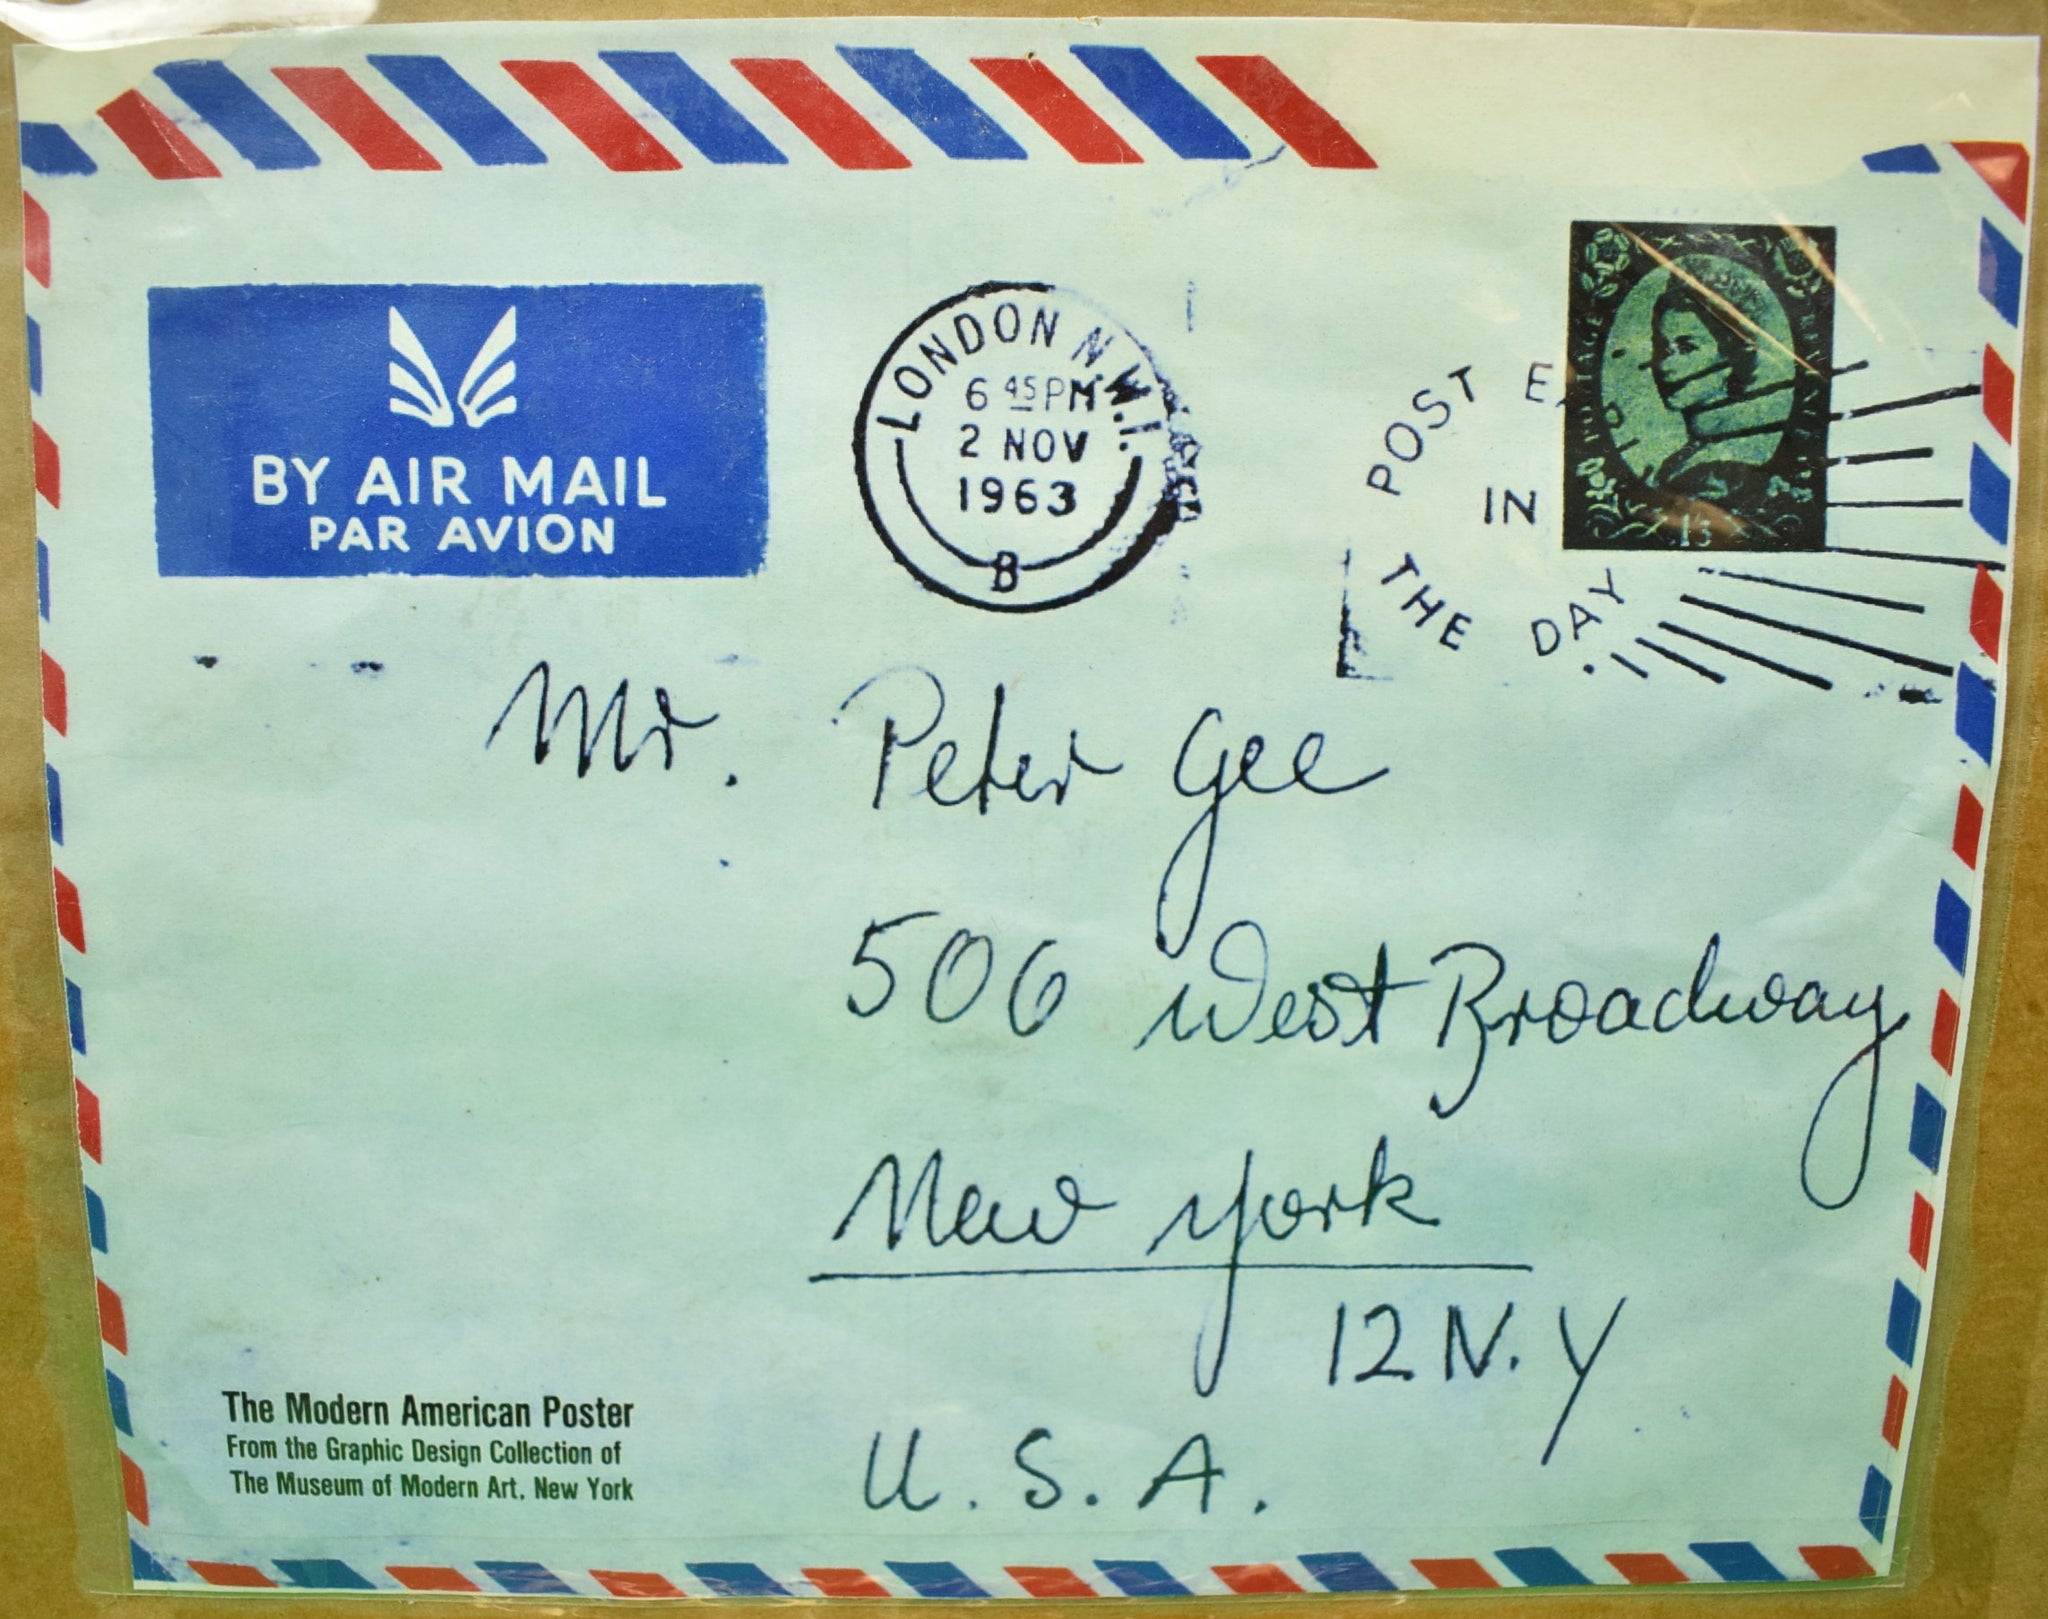 BY AIR MAIL
PAR AVION
LONDON N.W.1.
6 45 PM
2 NOV
1963
B
POST E
IN
THE DAY
POSTAGE
1'3
Mr. Peter Gee
506 West Broadway
New York
12 N.Y
U.S.A.
The Modern American Poster
From the Graphic Design Collection of
The Museum of Modern Art, New York